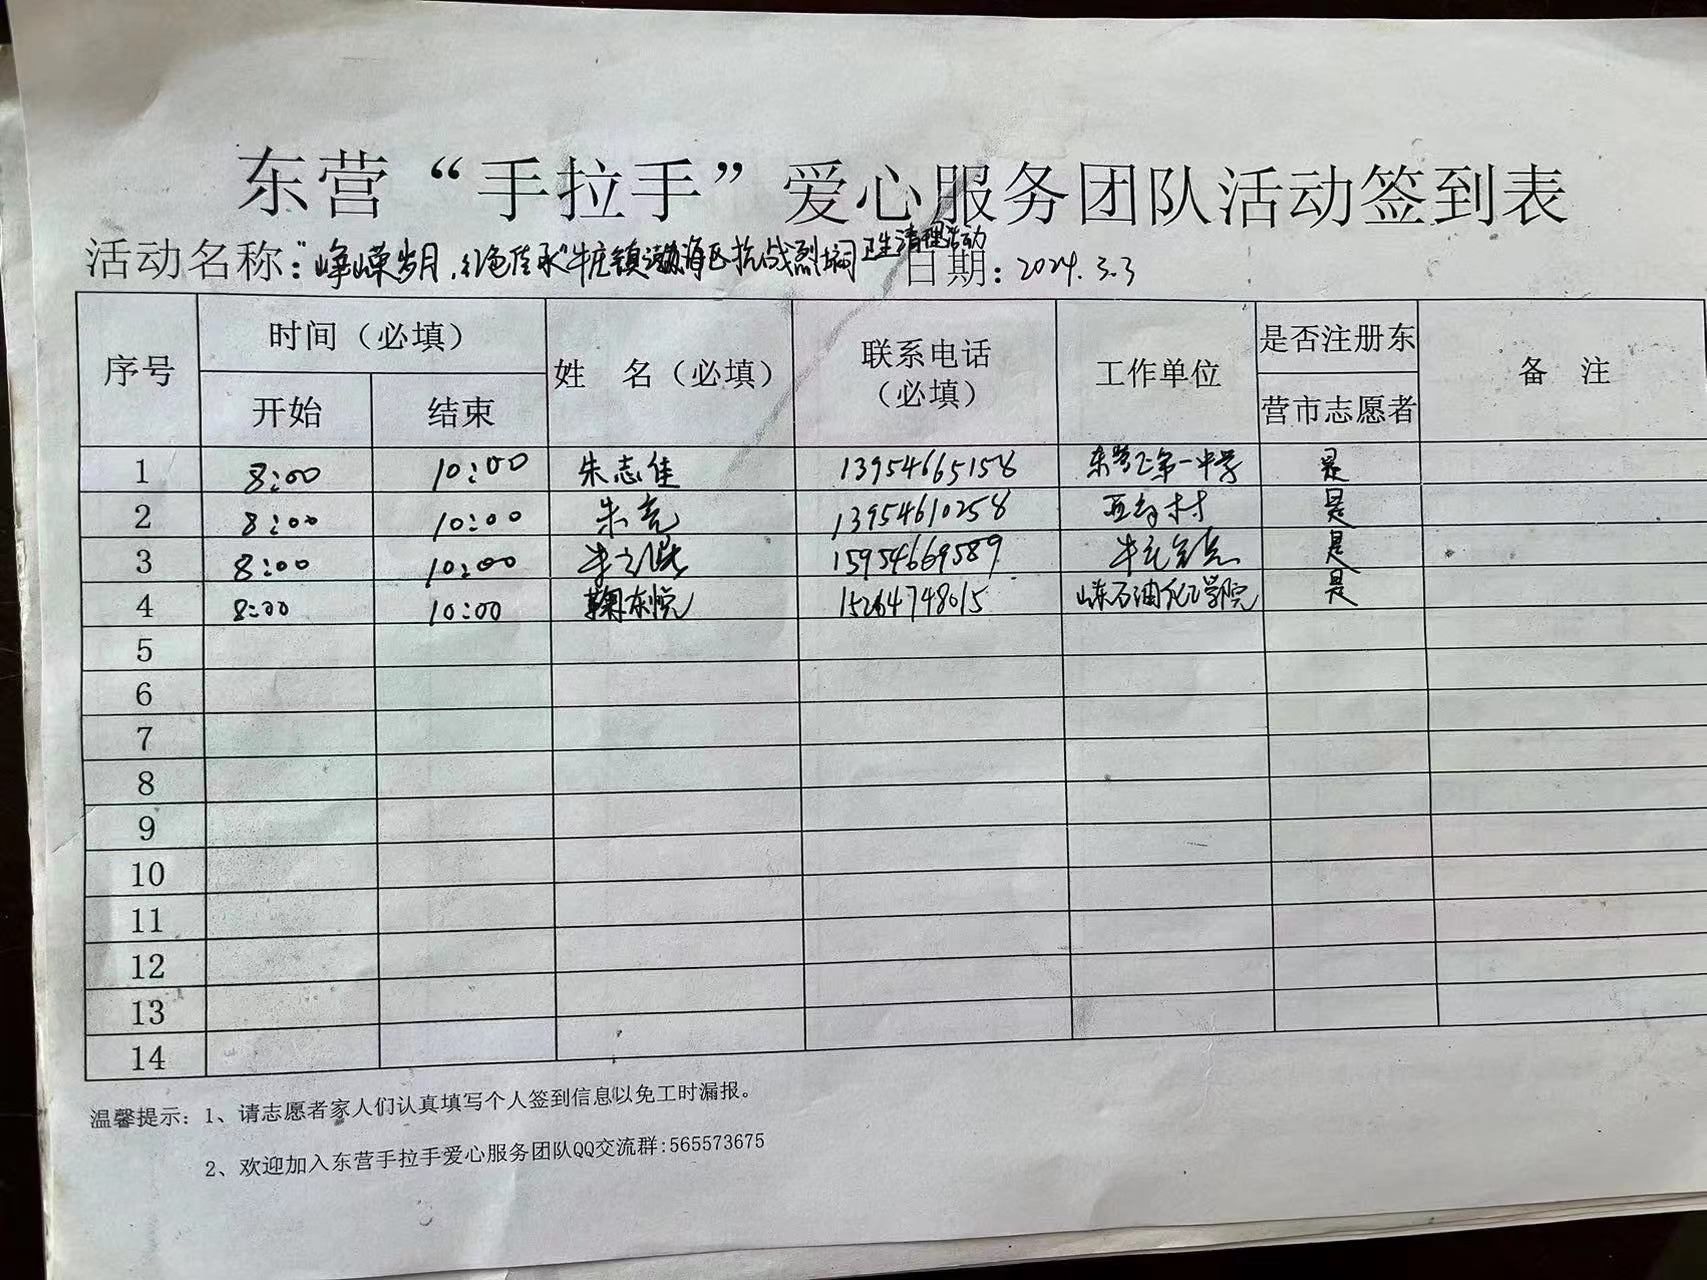 东营“手拉手”爱心服务团队活动签到表
活动名称：“峥嵘岁月，红色传承”牛庄镇渤海区抗战烈士祠卫生清理活动 日期：2024.3.3
序号 时间（必填） 姓 名（必填） 联系电话（必填） 工作单位 是否注册东营市志愿者 备 注
开始 结束
1 8:00 10:00 朱志佳 13954665158 东营区第一中学 是
2 8:00 10:00 朱亮 13954610258 西 村 是
3 8:00 10:00 15954669589 牛庄 是
4 8:00 10:00 鞠东悦 15264748015 山东石油化工学院 是
5
6
7
8
9
10
11
12
13
14
温馨提示：1、请志愿者家人们认真填写个人签到信息以免工时漏报。
2、欢迎加入东营手拉手爱心服务团队QQ交流群:565573675